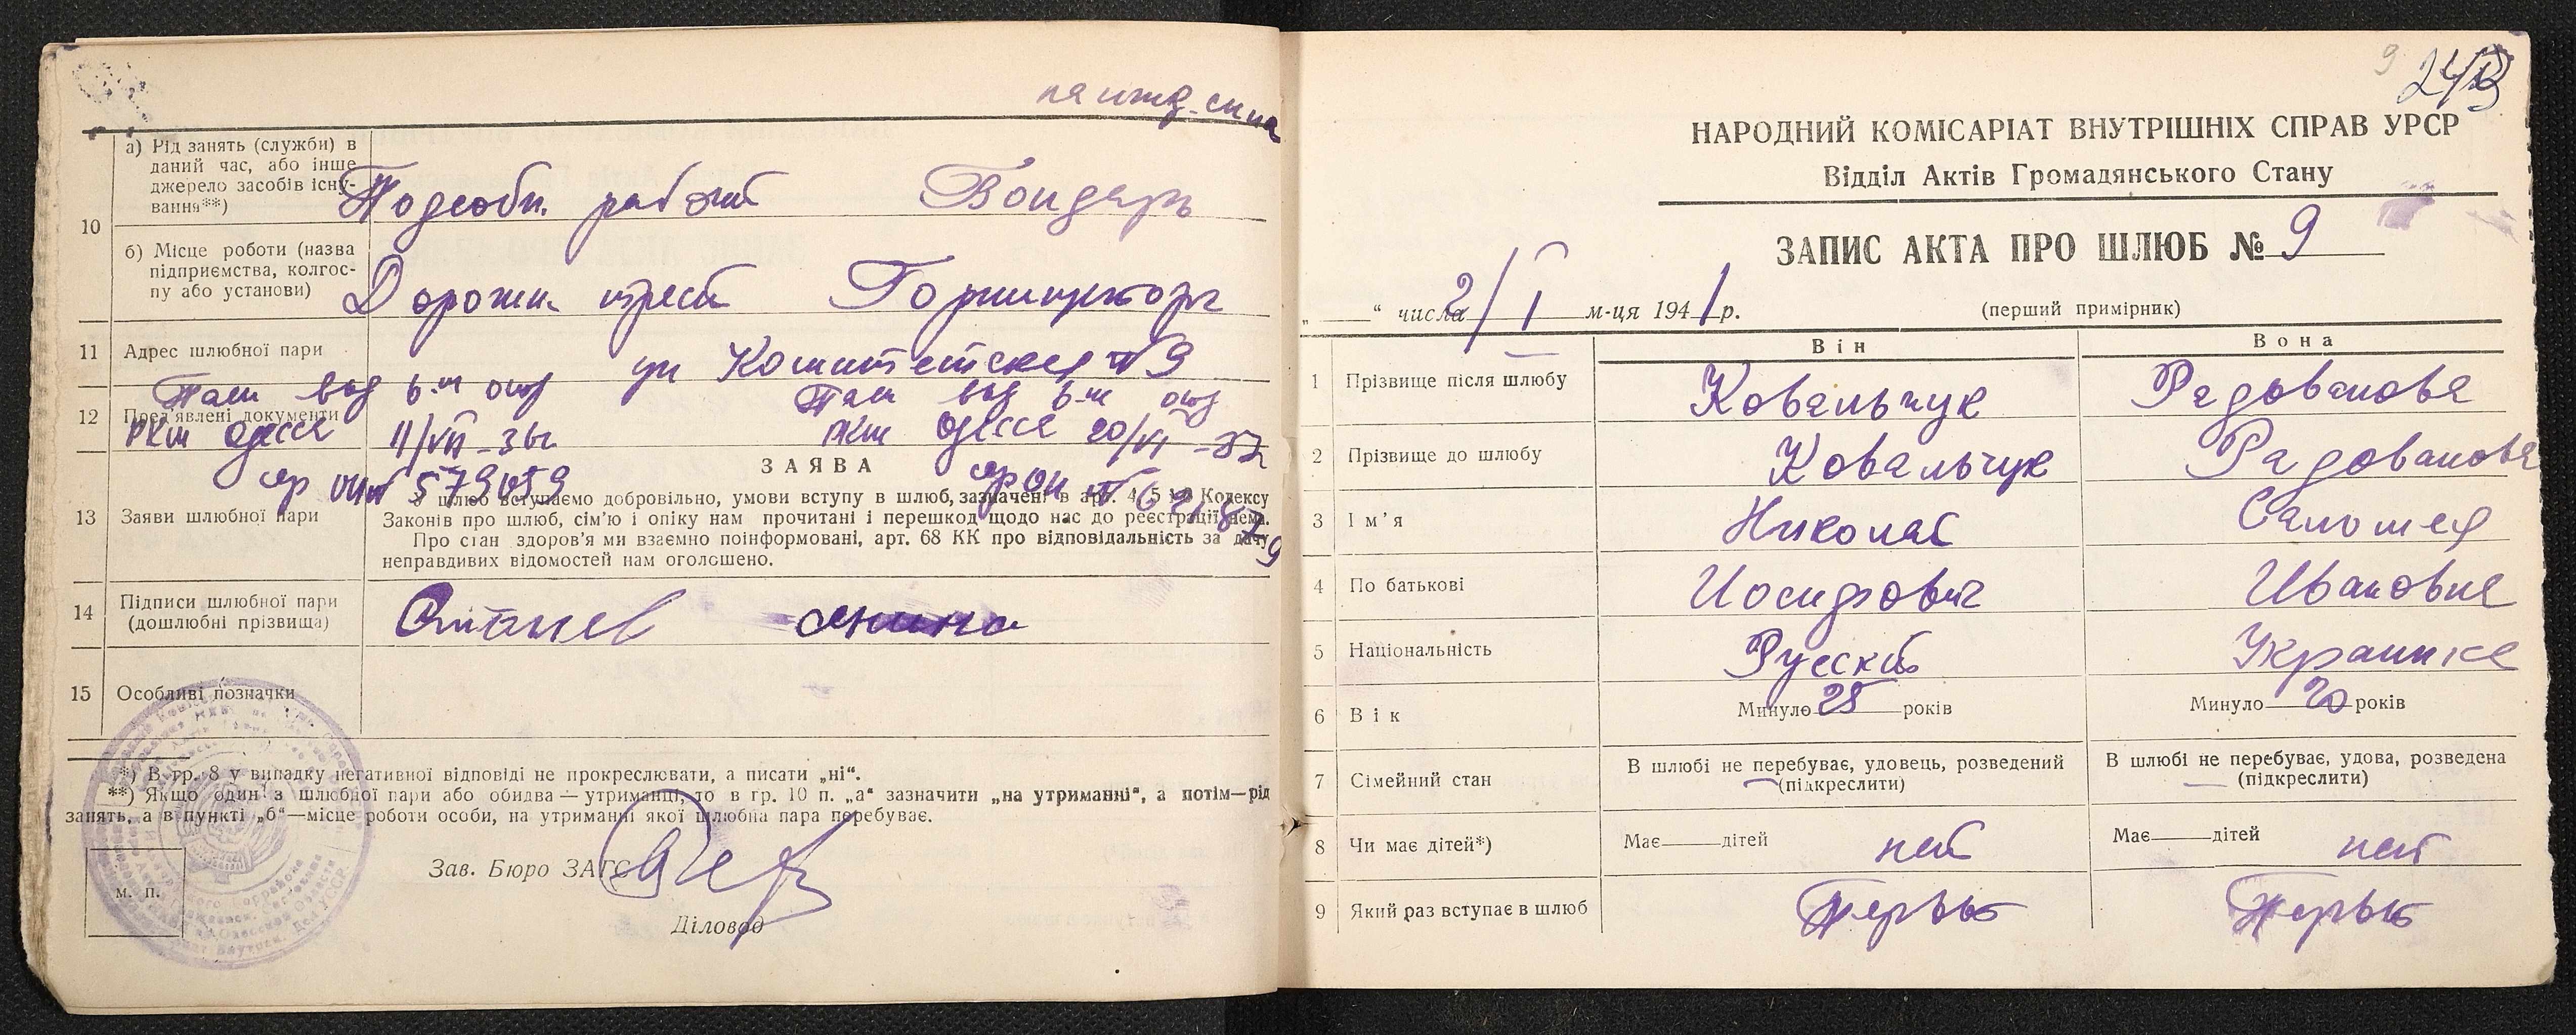 на ижд.
10
а) Рід занять (служби) в
даний час, або інше
джерело засобів існу-
вання**)
Подсобн. рабочий Бондарь
б) Місце роботи (назва
підприємства, колгос-
пу або установи)
Дорожн. трест Горпищеторг
11 Адрес шлюбной пари
ул Комитетская № 9
12 Пред'явлені документи
Пасп выд 6-м отд
РКМ Одесса 11/VII-36
Пасп выд 6-м отд
РКМ Одесса 20/VI-37
сер № 579059
сер ОИ № 621879
ЗАЯВА
13 Заяви шлюбної пари
У шлюб вступаємо добровільно, умови вступу в шлюб, зазначені в арт. 4, 5 Кодексу
Законів про шлюб, сім'ю і опіку нам прочитані і перешкод щодо нас до реєстрації нема.
Про стан здоров'я ми взаємно поінформовані, арт. 68 КК про відповідальність за дачу
неправдивих відомостей нам оголошено.
14 Підписи шлюбної пари
(дошлюбні прізвища)
15 Особливі позначки
*) В гр. 8 у випадку негативної відповіді не прокреслювати, а писати „ні“.
**) Якщо один з шлюбної пари або обидва — утриманці, то в гр. 10 п. „а“ зазначити „на утриманні“, а потім—рід
занять, а в пункті „б“—місце роботи особи, на утриманні якої шлюбна пара перебуває.
Зав. Бюро ЗАГС
м. п.
Діловод
9
НАРОДНИЙ КОМІСАРІАТ ВНУТРІШНІХ СПРАВ УРСР
Відділ Актів Громадянського Стану
ЗАПИС АКТА ПРО ШЛЮБ № 9
„ “ числа 2/I м-ця 1941 р. (перший примірник)
Він Вона
1 Прізвище після шлюбу Ковальчук Радованова
2 Прізвище до шлюбу Ковальчук Радованова
3 Ім'я Николай Саломея
4 По батькові Иосифович Ивановна
5 Національність Русский Украинка
6 Вік Минуло 25 років Минуло 20 років
7 Сімейний стан
В шлюбі не перебуває, удовець, розведений
(підкреслити)
В шлюбі не перебуває, удова, розведена
(підкреслити)
8 Чи має дітей*) Має дітей нет Має дітей нет
9 Який раз вступає в шлюб Первый Первый